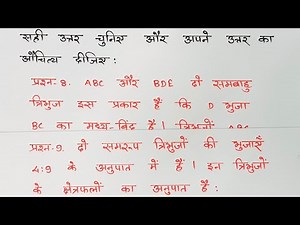 सही उत्तर चुनिए और अपने उत्तर का
औचित्य दीजिए :
प्रश्न-8. ABC और BDE दो समबाहु
त्रिभुज इस प्रकार हैं कि D भुजा
BC का मध्य-बिंदु है। त्रिभुजों ABC
प्रश्न-9. दो समरूप त्रिभुजों की भुजाएँ
4:9 के अनुपात में हैं। इन त्रिभुजों
के क्षेत्रफलों का अनुपात है :